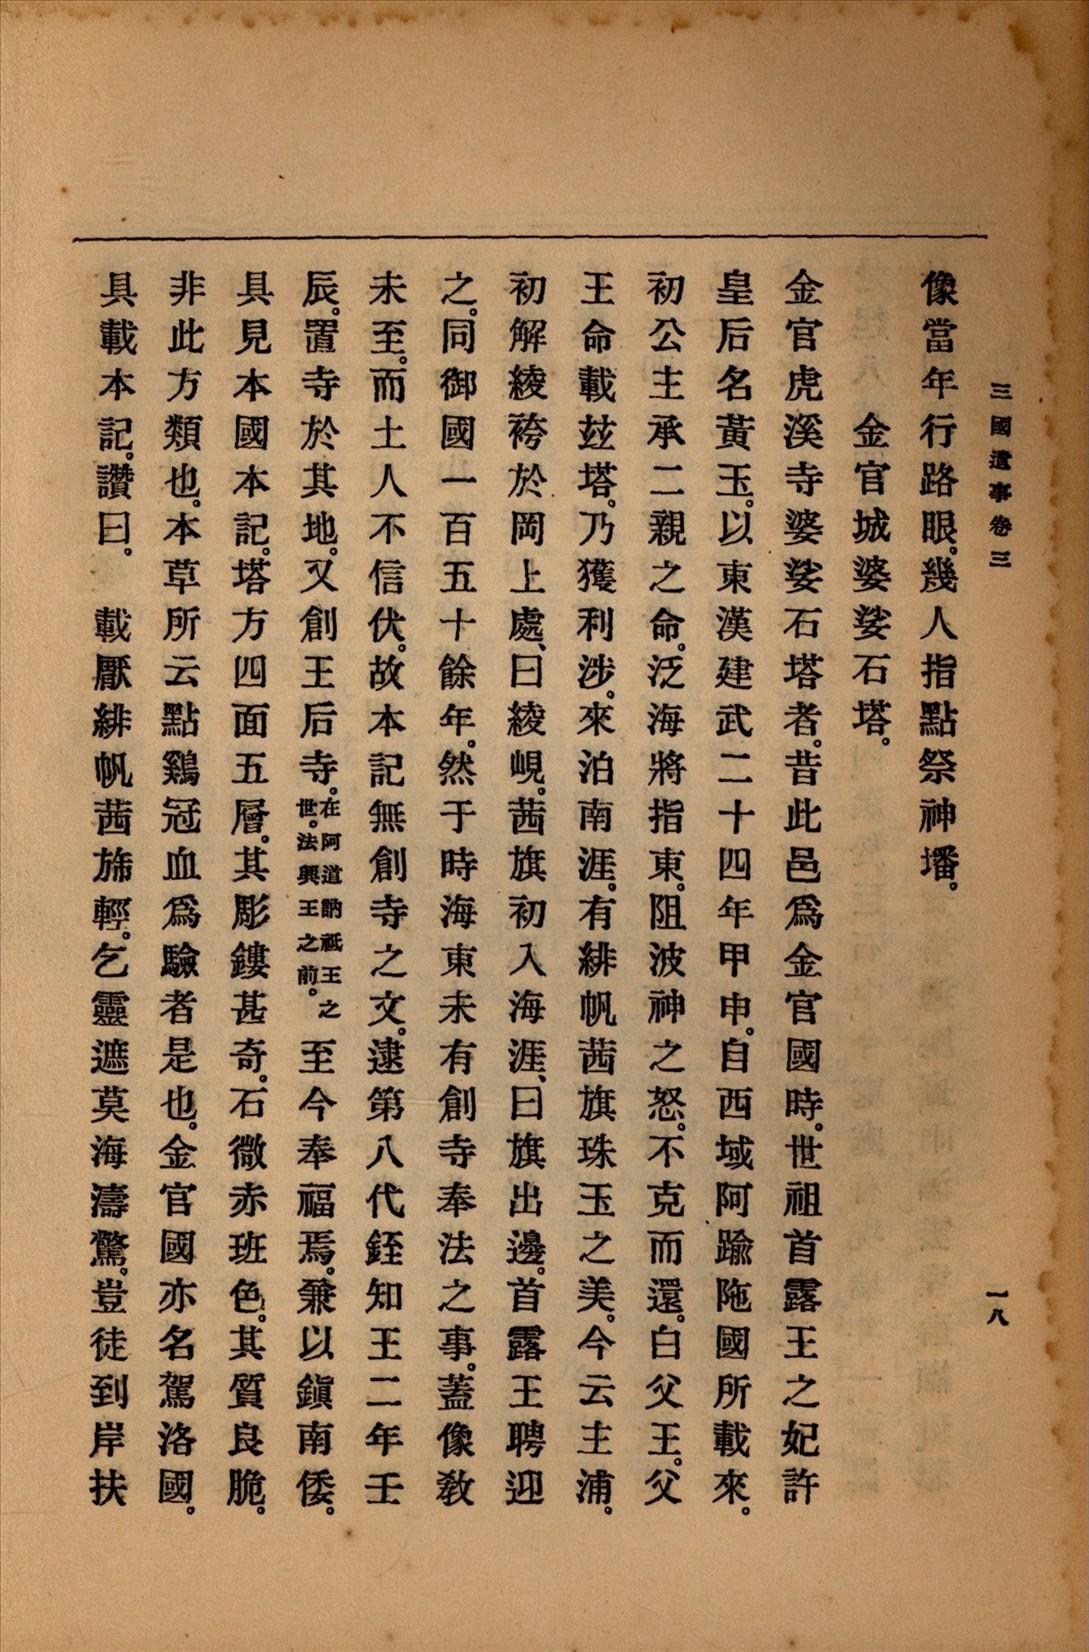 三國遺事卷三
一八
像當年行路眼。幾人指點祭神墦。
金官城婆娑石塔。
金官虎溪寺婆娑石塔者。昔此邑爲金官國時。世祖首露王之妃許
皇后名黃玉。以東漢建武二十四年甲申。自西域阿踰陁國所載來。
初公主承二親之命。泛海將指東。阻波神之怒。不克而還。白父王。父
王命載玆塔。乃獲利涉。來泊南涯。有緋帆茜旗珠玉之美。今云主浦。
初解綾袴於岡上處、曰綾峴。茜旗初入海涯、曰旗出邊。首露王聘迎
之。同御國一百五十餘年。然于時海東未有創寺奉法之事。蓋像敎
未至。而土人不信伏。故本記無創寺之文。逮第八代銍知王二年壬
辰。置寺於其地。又創王后寺。在阿道訥祇王之世。法興王之前。至今奉福焉。兼以鎭南倭。
具見本國本記。塔方四面五層。其彫鏤甚奇。石微赤班色。其質良脆。
非此方類也。本草所云點鷄冠血爲驗者是也。金官國亦名駕洛國。
具載本記。讚曰。　載厭緋帆茜旆輕。乞靈遮莫海濤驚。豈徒到岸扶